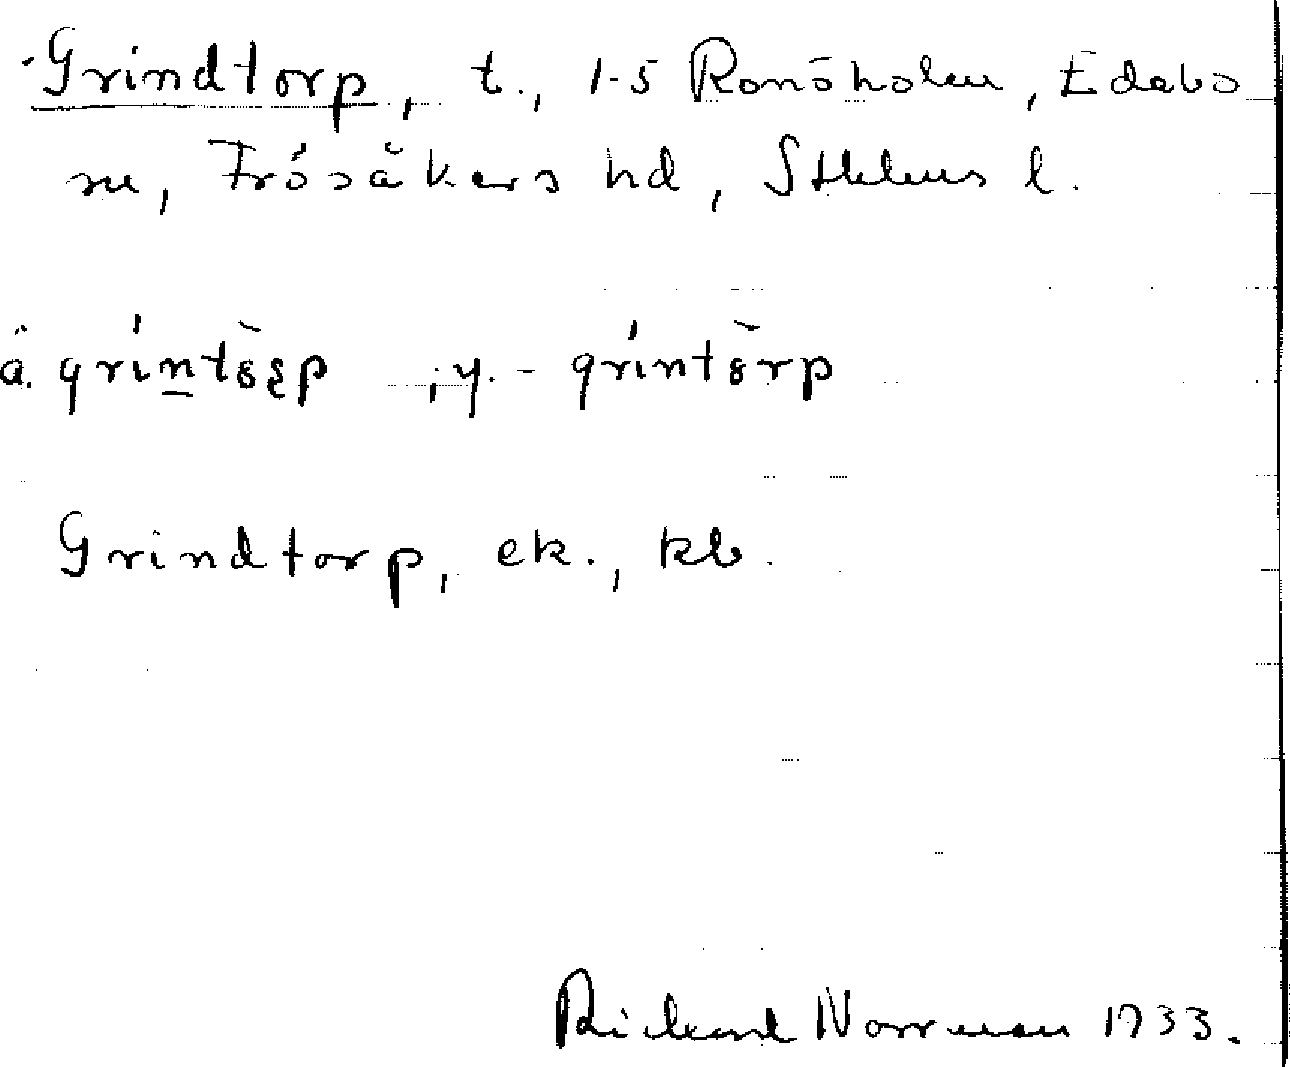 Grindtorp, t., 1-5 Ronöholm, Edebo
sn, Frösåkers hd, Sthlms l.
ä. gríntòrp ,y. - gríntòrp
Grindtorp, ek., kb.
Rickard Norrman 1933.